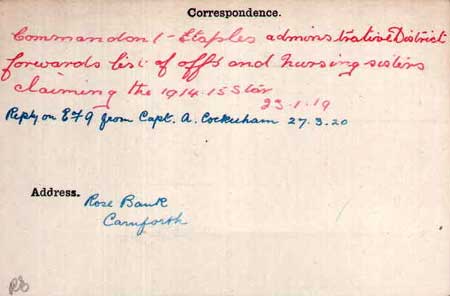 Correspondence.
Commandant - Etaples administrative District
forwards list of offrs and Nursing sisters
claiming the 1914-15 Star
23-1-19
Reply on EF9 from Capt. A. Cockerham 27.3.20
Address.
Rose Bank
Carnforth